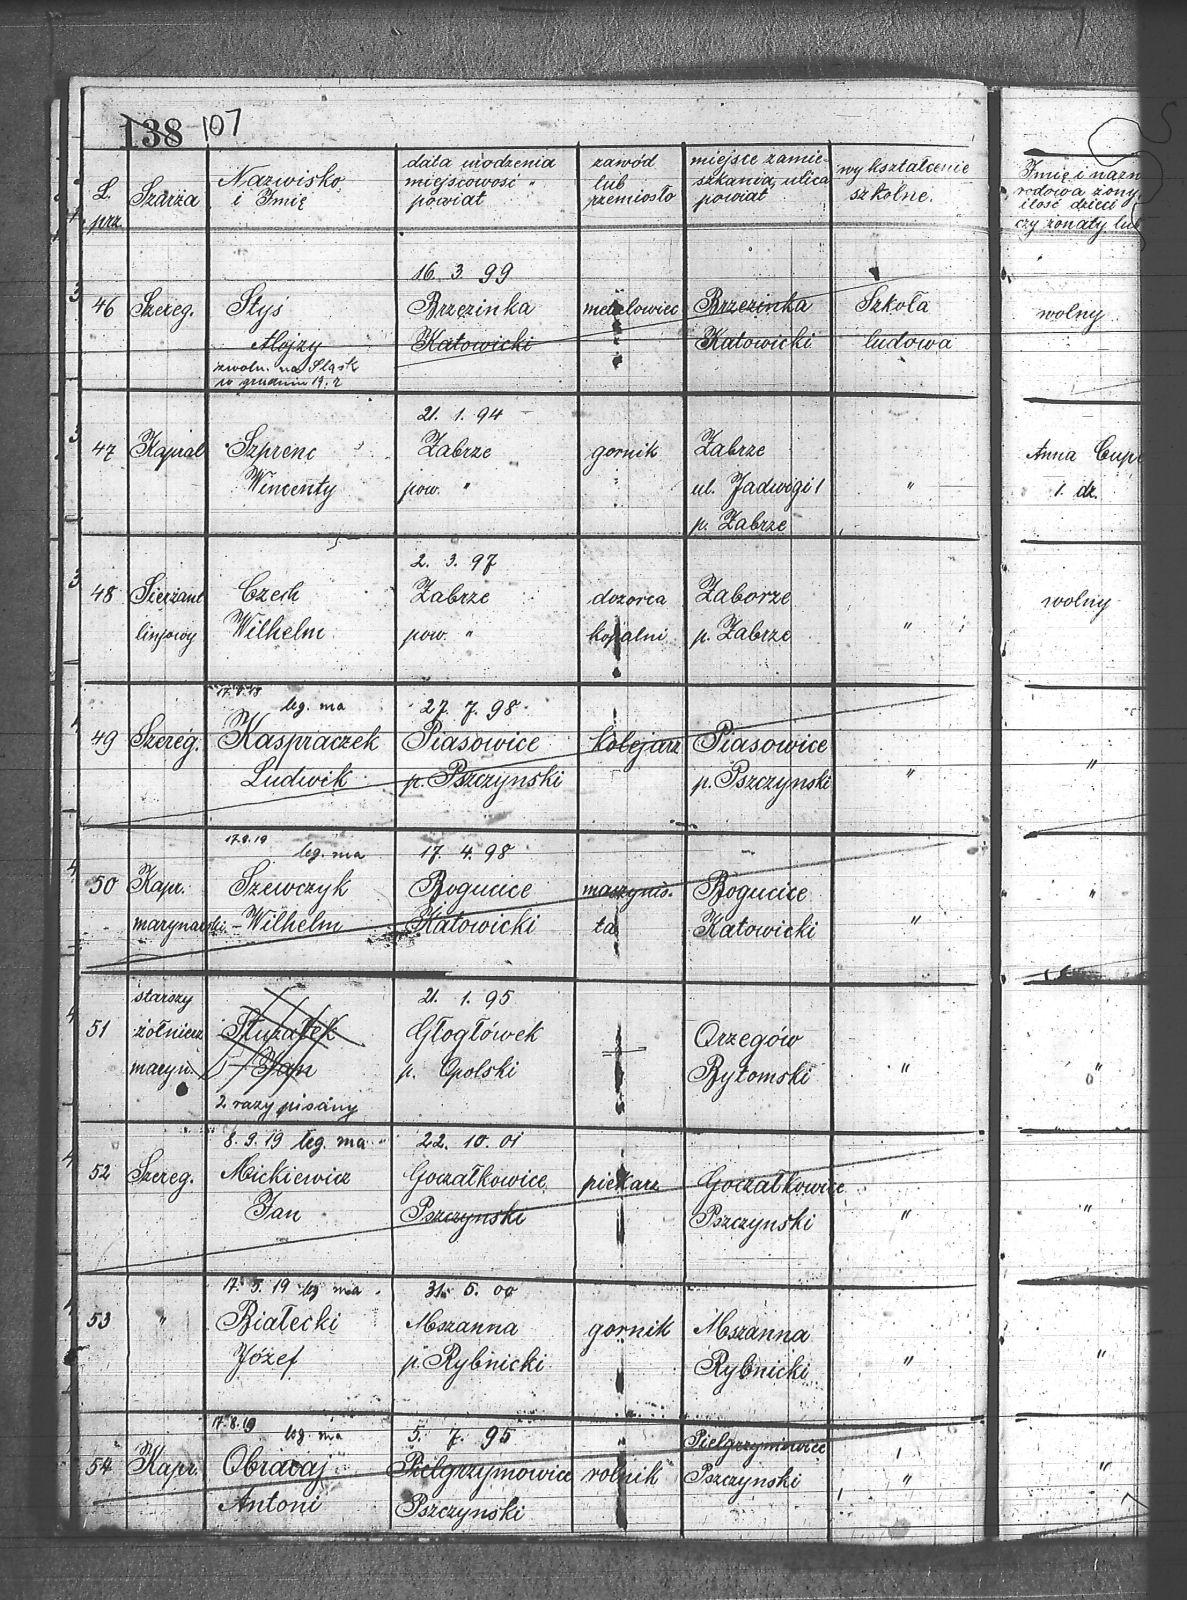 138 107
L. prz.
Szarża
Nazwisko
i Imię
data urodzenia
miejscowość "
powiat
zawód
lub
rzemiosło
miejsce zamie-
szkania, ulica
powiat
wykształcenie
szkolne.
Imię i nazw
rodowa żony
ilość dzieci
czy żonaty lub
16. 3. 99
46 Szereg. Styś Brzezinka metalowiec Brzezinka Szkoła wolny
Alojzy Katowicki Katowicki ludowa
zwoln. na Śląsk
w grudniu 19. r
21. 1. 94
47 Kapral Szprenc Zabrze gornik Zabrze Anna
Wincenty pow. " ul. Jadwigi 1 " 1. dz.
p. Zabrze
2. 3. 97
48 Sierżant Czech Zabrze dozorca Zaborze wolny
linjowy Wilhelm pow. " kopalni p. Zabrze "
leg. ma 27. 7. 98
49 Szereg. Kaspraczek Piasowice kolejarz Piasowice "
Ludwik p. Pszczynski p. Pszczynski "
17.8.19 leg. ma 17. 4. 98
50 Kapr. Szewczyk Bogucice maszynis. Bogucice "
marynarski - Wilhelm Katowicki ta Katowicki "
starszy 21. 1. 95
51 żołnierz Głogówek Orzegów
maryn. Jan p. Opolski Bytomski " "
2 razy pisany
8. 9. 19 leg. ma 22. 10. 01
52 Szereg. Mickiewicz Goczałkowice piekarz Goczałkowice
Jan Pszczynski Pszczynski " "
17. 5. 19 leg ma 31. 5. 00
53 " Białecki Mszanna gornik Mszanna
Józef p. Rybnicki Rybnicki " "
17.8.19 leg. ma 5. 7. 95 Pielgrzymowice
54 Kapr. Obracaj Pielgrzymowice rolnik Pszczynski " "
Antoni Pszczynski